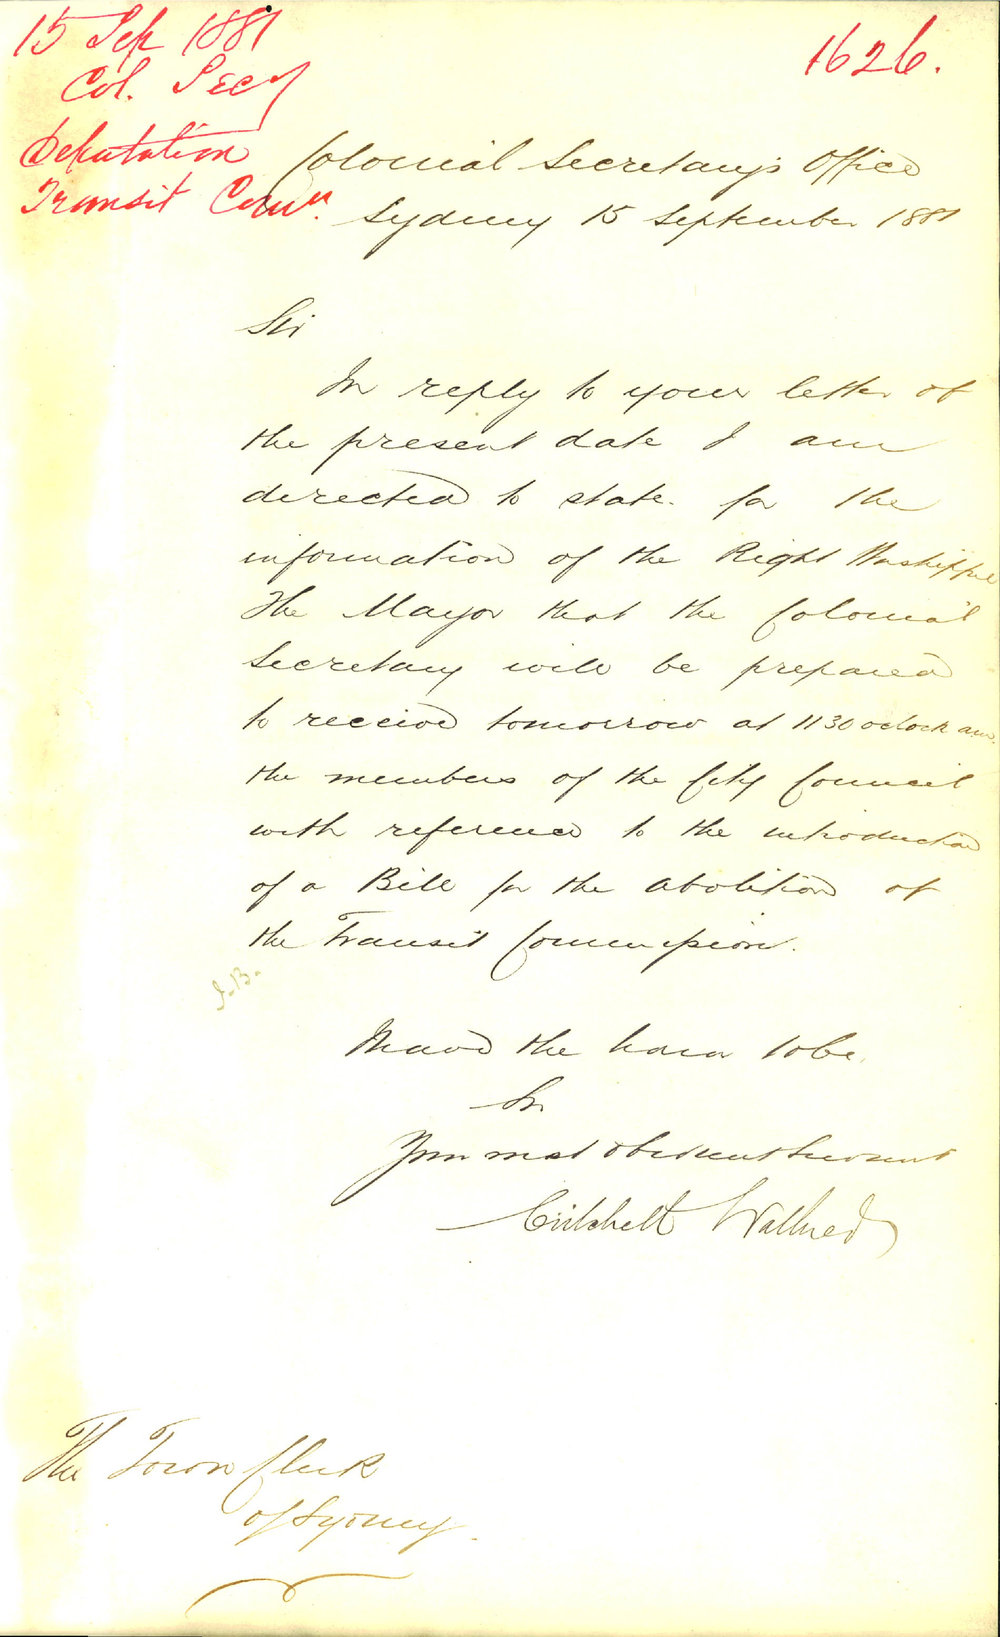 15 Sep 1881
Col. Secy
Deputation
Transit Comn.
1626.
Colonial Secretary's Office
Sydney 15 September 1881
Sir
In reply to your letter of
the present date I am
directed to state for the
information of the Right Worshipful
The Mayor that the Colonial
Secretary will be prepared
to receive tomorrow at 11 30 oclock a.m.
the members of the City Council
with reference to the introduction
of a Bill for the abolition of
the Transit Commission.
J.B.
I have the honor to be
Sir
Your most obedient Servant
Critchett Walker
The Town Clerk
of Sydney.